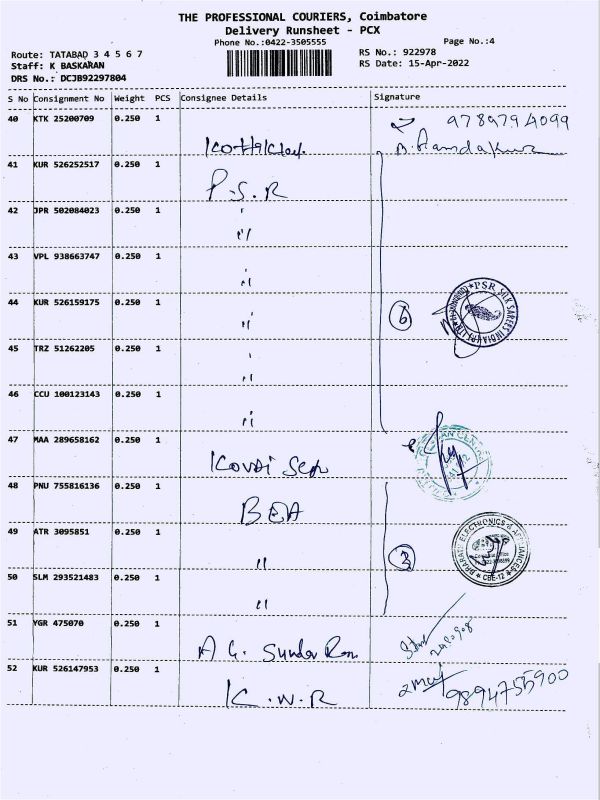 THE PROFESSIONAL COURIERS, Coimbatore
Delivery Runsheet - PCX
Phone No.:0422-3505555
Page No.:4
Route: TATABAD 3 4 5 6 7
Staff: K BASKARAN
DRS No.: DCJB92297804
RS No.: 922978
RS Date: 15-Apr-2022
S No Consignment No Weight PCS Consignee Details Signature
40 KTK 25200709 0.250 1 9789794099
41 KUR 526252517 0.250 1 P.S.R
42 JPR 502084023 0.250 1 "
43 VPL 938663747 0.250 1 "
44 KUR 526159175 0.250 1 " 6 PSR SILK SAREES INDIA (P) LTD
45 TRZ 51262205 0.250 1 "
46 CCU 100123143 0.250 1 "
47 MAA 289658162 0.250 1 Kovai
48 PNU 755816136 0.250 1 BEA
49 ATR 3095851 0.250 1 " 3 BHARATH ELECTRONICS & APPLIANCES CBE-12
50 SLM 293521483 0.250 1 "
51 YGR 475070 0.250 1 A G. Sundar
52 KUR 526147953 0.250 1 K.W.R 9894755900